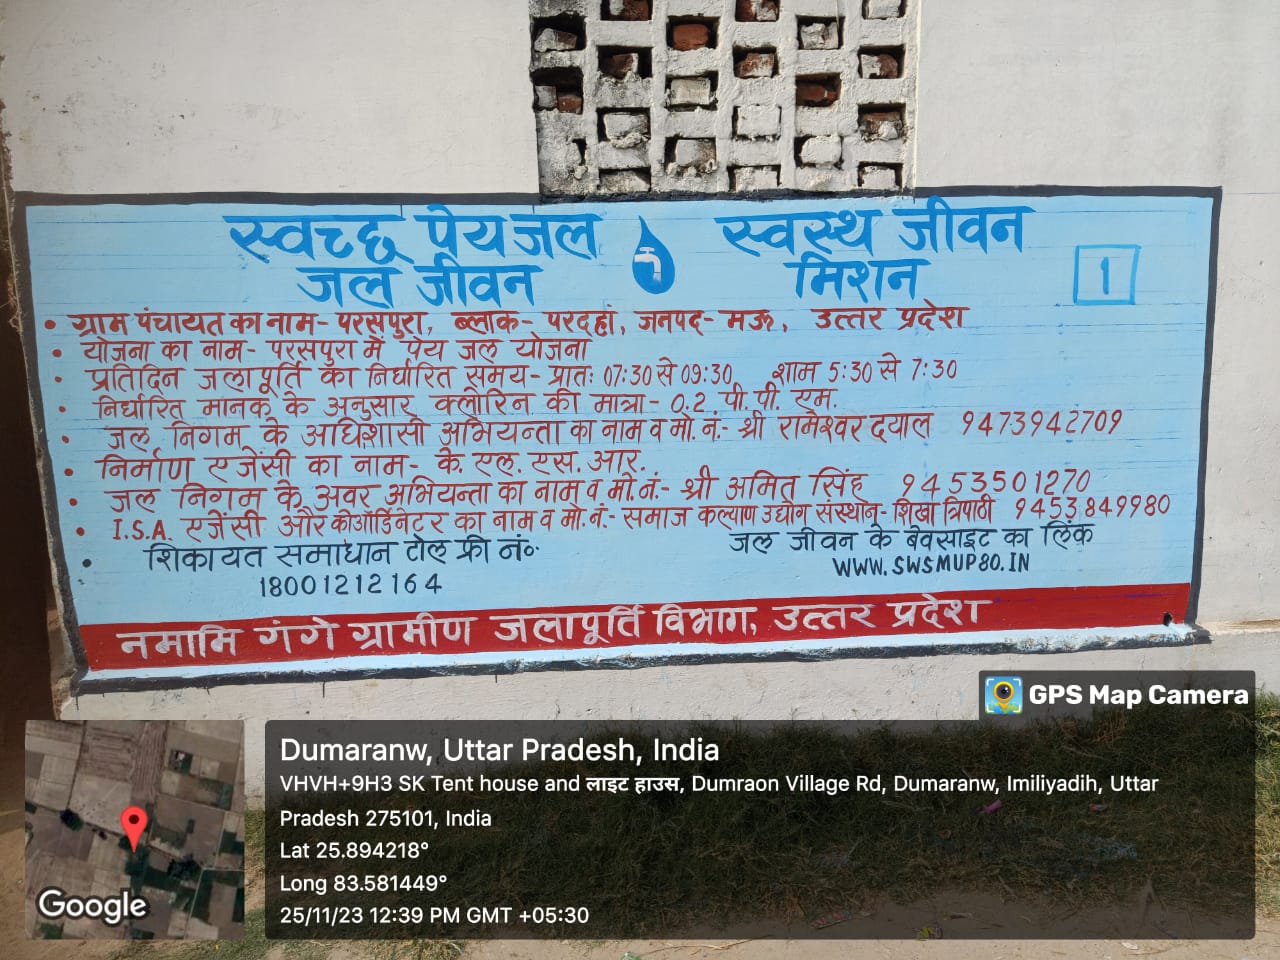 स्वच्छ पेयजल स्वस्थ जीवन
जल जीवन मिशन
1
• ग्राम पंचायत का नाम- परसपुरा, ब्लाक- परदहां, जनपद- मऊ, उत्तर प्रदेश
• योजना का नाम- परसपुरा में पेय जल योजना
• प्रतिदिन जलापूर्ति का निर्धारित समय- प्रातः 07:30 से 09:30 शाम 5:30 से 7:30
• निर्धारित मानक के अनुसार क्लोरिन की मात्रा- 0.2 पी. पी. एम.
• जल निगम के अधिशासी अभियन्ता का नाम व मो. नं.- श्री रामेश्वर दयाल 9473942709
• निर्माण एजेंसी का नाम- के. एल. एस. आर.
• जल निगम के अवर अभियन्ता का नाम व मो. नं.- श्री अमित सिंह 9453501270
• I.S.A. एजेंसी और कीऑर्डिनेटर का नाम व मो. नं.- समाज कल्याण उद्योग संस्थान- शिखा त्रिपाठी 9453849980
• शिकायत समाधान टोल फ्री नं०
18001212164
जल जीवन के बेवसाइट का लिंक
WWW.SWSMUP80.IN
नमामि गंगे ग्रामीण जलापूर्ति विभाग, उत्तर प्रदेश
GPS Map Camera
Dumaranw, Uttar Pradesh, India
VHVH+9H3 SK Tent house and लाइट हाउस, Dumraon Village Rd, Dumaranw, Imiliyadih, Uttar
Pradesh 275101, India
Lat 25.894218°
Long 83.581449°
25/11/23 12:39 PM GMT +05:30
Google